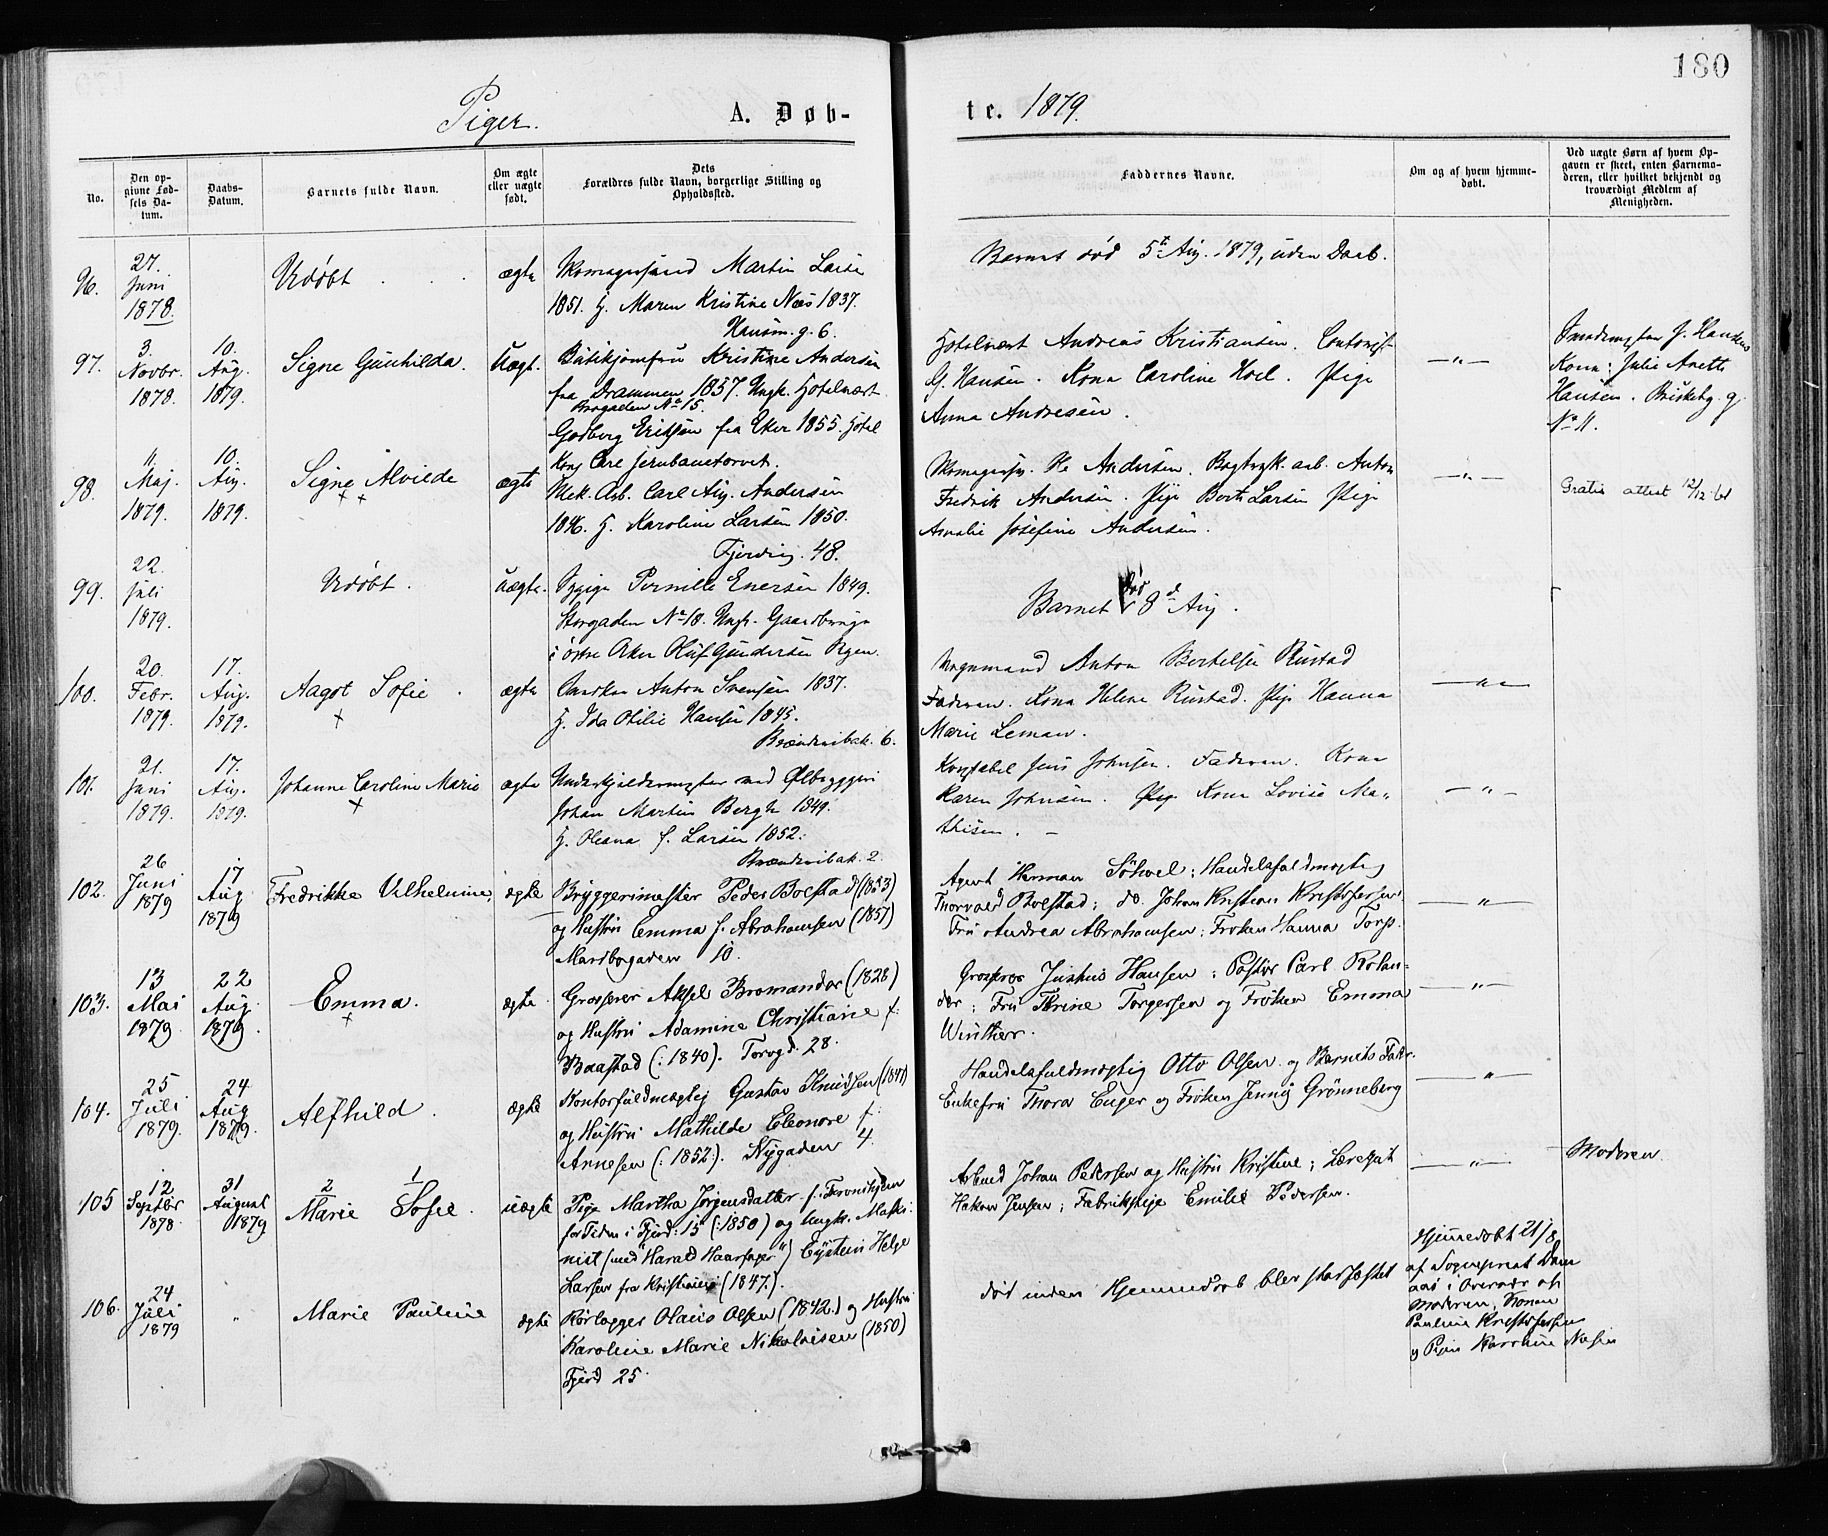 180
Piger.
A. Døb-
te. 1879.
No.
Den op-
givne Fød-
sels Da-
tum.
Daabs-
Datum.
Barnets fulde Navn.
Om ægte
eller uægte
født.
Dets
Forældres fulde Navn, borgerlige Stilling og
Opholdssted.
Faddernes Navne.
Om og af hvem hjemme-
døbt.
Ved uægte Børn af hvem Op-
gaven er skeet, enten Barnemo-
deren, eller hvilket bekjendt og
troværdigt Medlem af
Menigheden.
96.
27.
Juni
1878.
Udøbt
ægte
Skomagersvend Martin Larsen
1851. H. Maren Kristine Næs 1837.
Hausm. g. 6.
Barnet død 5te Aug. 1879, uden Daab.
97.
3.
Novbr.
1878.
10.
Aug.
1879.
Signe Gunhilda.
Uægt.
Butikjomfru Kristine Andersen
fra Drammen 1857. Ungk. Hotelvært
Brogaden No 15.
Godberg Eriksen fra Eker 1855. Hotel
Kong Carl Jernbanetorvet.
Hotelvært Andreas Kristiansen. Contorist
G. Hansen. Kona Caroline Hoel. Pige
Anna Andresen.
—„—
Smedemester J. Hansens
Kona: Julie Anette
Hansen. Briskebg. g.
No 11.
98.
11.
Maj.
1879.
10.
Aug.
1879.
Signe Alvilde
ægte
Mek. Arb. Carl Aug. Andersen
1846. H. Karoline Larsen 1850.
Fjerding. 48.
Skomagersv. Andersen. Bogtryk. arb. Anton
Fredrik Andersen. Pige Berte Larsen Pige
Amalie Josefine Andersen.
—„—
Gratis attest 12/12-61
99.
22.
Juli
1879.
Udøbt.
Uægte.
Sypige Pernille Enersen 1849.
Storgaden No 18. Ungk. Gaardbruger
i østre Aker Oluf Gundersen Rgen.
Barnet død 8d Aug.
100.
20.
Febr.
1879.
17.
Aug.
1879.
Aagot Sofie
ægte
Snedker Anton Svensen 1837.
H. Ida Otilie Hansen 1845.
Brænderibak. 6.
Vognmand Anton Bertelsen Rustad
Faderen. Kona Helene Rustad. Pige Hanna
Marie Leman.
—„—
101.
21.
Juni
1879.
17.
Aug.
1879.
Johanne Caroline Marie
ægte
Underkjeldermester ved Ølbryggeri
Johan Martin Bergh 1849.
H. Oleana f. Larsen 1852.
Brænderibak. 2.
Konstabel Jens Johnsen. Faderen. Kona
Karen Johnsen. Pige Kona Lovise Ma-
thisen. —
—„—
102.
26
Juni
1879
17
Aug
1879
Fredrikke Vilhelmine,
ægte
Bryggerimester Peder Bolstad (1833)
og Hustru Emma f. Abrahamsen (1857)
Maridbogaden 10.
Agent Herman Sølvel; Handelsfuldmægtig
Thorvald Bolstad; do. Johan Kristian Kristofersen.
Fru Andrea Abrahamsen; Frøken Hanna Torp.
—„—
103.
13
Mai
1879
22
Aug.
1879.
Emma.
ægte.
Grosserer Aksel Bromander (1828)
og Hustru Adamine Christiane f:
Baastad (:1840). Torvgd. 28.
Grosserer Justus Hansen; Pastor Carl Rolan-
der; Fru Thrine Torgersen og Frøken Emma
Winther.
—„—
104.
25
Juli
1879.
24
Aug
1879.
Alfhild.
ægte
Kontorfuldmægtig Gustav Knudsen (1841)
og Hustru Mathilde Eleonore f:
Arnesen (:1852:). Nygaden 4.
Handelsfuldmægtig Otto Olsen og Barnets Fader.
Enkefru Thora Enger og Frøken Jenny Grønneberg
—„—
105
12
Septbr
1878.
31
August
1879
2 1
Marie Sofie.
uægte
Pige Martha Jørgensdatter f. Tronhjem
for Tiden i Fjerd: 15 (:1850) og Ungkr. Maski-
nist (med "Harald Haarfager") Eystein Helge
Larsen fra Kristiania (1847.).
Arbmd Johan Pedersen og Hustru Kristine; Læregut
Hakon Jensen; Fabrikspige Emilie Pedersen.
—„—
Moderen.
106.
24
Juli
1879
„
Marie Pauline
ægte
Rørlægger Olaus Olsen (1842.) og Hustru
Karoline Marie Nikolaisen (1850)
Fjerd 25.
død inden Hjemmedaab blev stadfæstet
Hjemmedøbt 21/8
af Sogneprest Dam
aas i Overvær af
Moderen, Konen
Pauline Kristofersen
og Pigen Karoline Nilsen